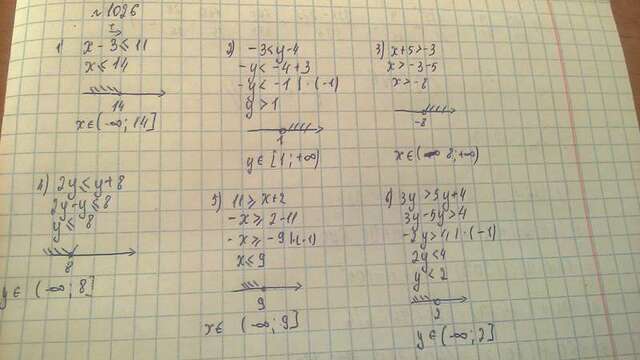 №1026
1) x - 3 ≤ 11
x ≤ 14
14
x ∈ (-∞; 14]
2) -3 < y - 4
-y < -4 + 3
-y < -1 | · (-1)
y > 1
1
y ∈ [1; +∞)
3) x + 5 > -3
x > -3 - 5
x > -8
-8
x ∈ ( 8; +∞)
4) 2y ≤ y + 8
2y - y ≤ 8
y ≤ 8
8
y ∈ (-∞; 8]
5) 11 ≥ x + 2
-x ≥ 2 - 11
-x ≥ -9 | · (-1)
x ≤ 9
9
x ∈ (-∞; 9]
6) 3y > 5y + 4
3y - 5y > 4
· (-1)
2y < 4
y < 2
2
y ∈ (-∞; 2]